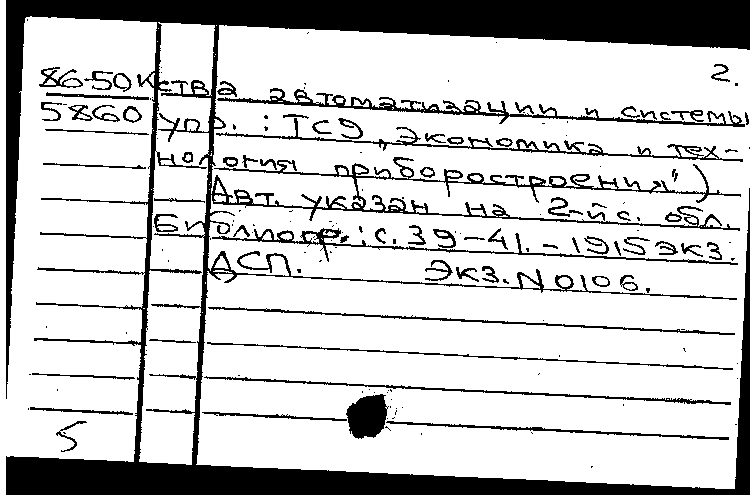 2.
86-50К ства автоматизации и системы
5860 упр. : ТС9 „Экономика и тех-
нология приборостроения").
Авт. указан на 2-й с. обл.
Библиогр.: с. 39-41. - 1915 экз.
ДСП. Экз. N 0106.
5